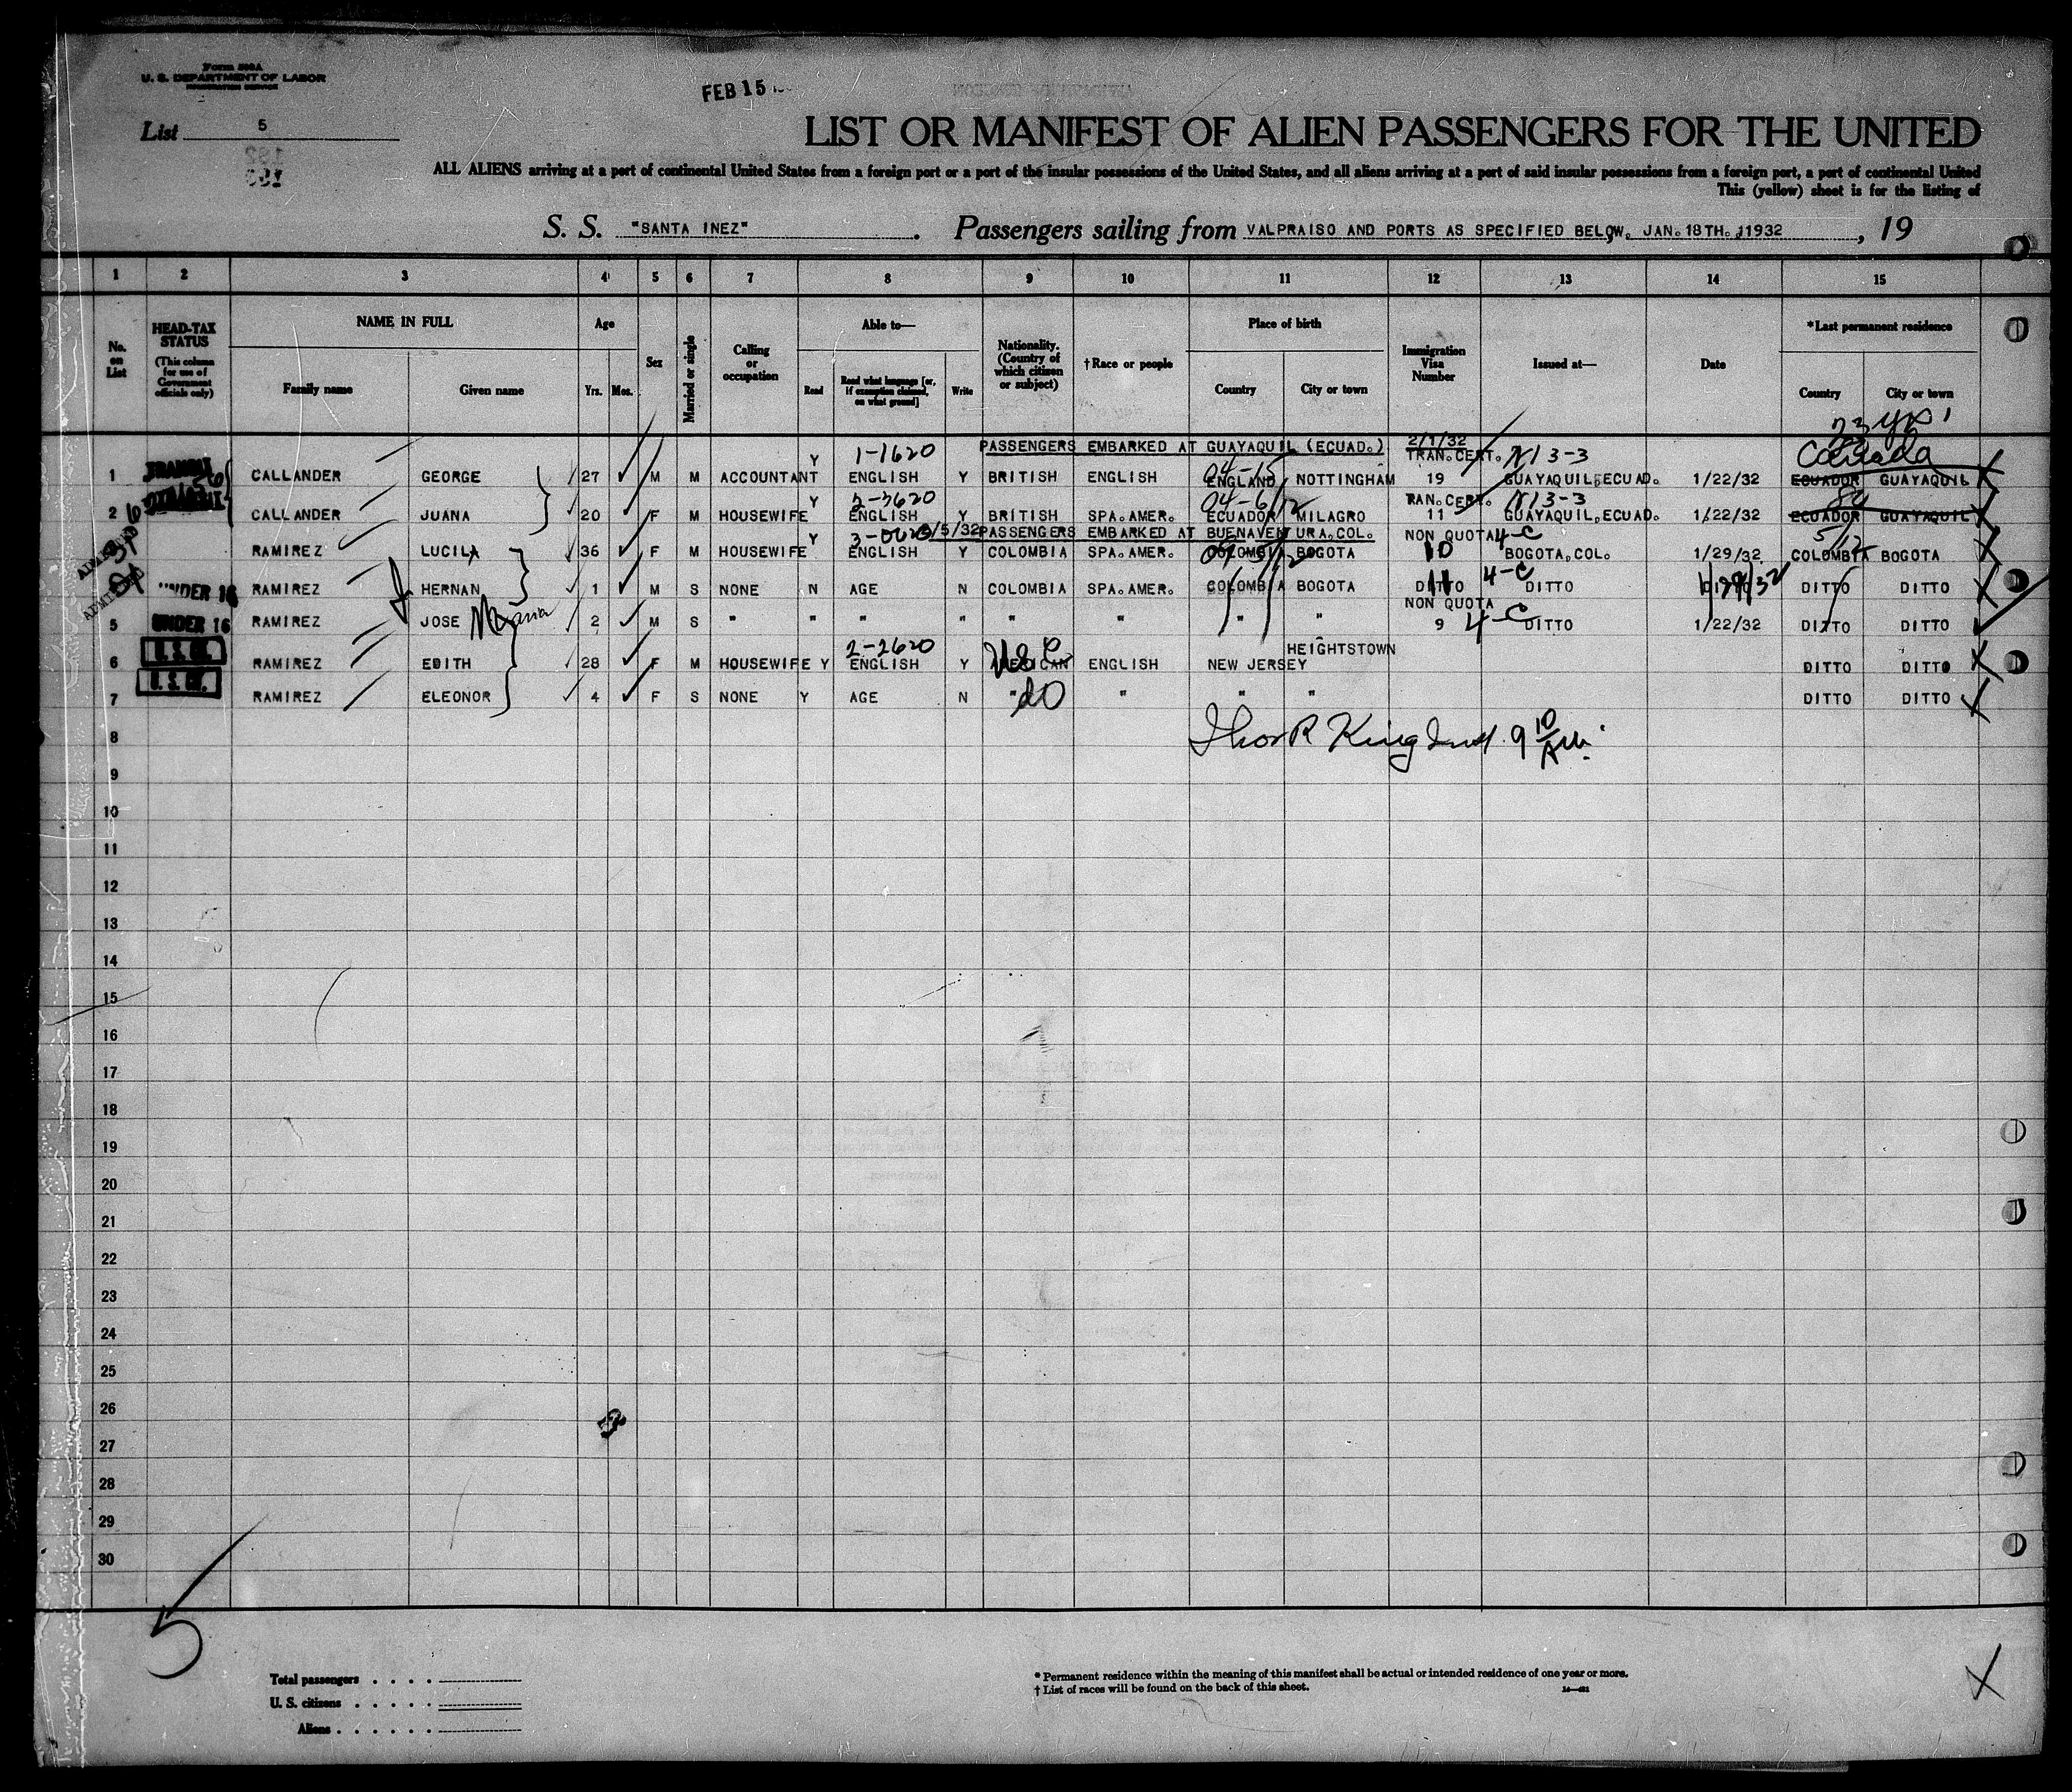 Form 500A
U. S. DEPARTMENT OF LABOR
IMMIGRATION SERVICE
FEB 15
List 5
LIST OR MANIFEST OF ALIEN PASSENGERS FOR THE UNITED
ALL ALIENS arriving at a port of continental United States from a foreign port or a port of the insular possessions of the United States, and all aliens arriving at a port of said insular possessions from a foreign port, a port of continental United
This (yellow) sheet is for the listing of
S. S. "SANTA INEZ". Passengers sailing from VALPRAISO AND PORTS AS SPECIFIED BELOW. JAN. 18TH. 1932, 19
1 2 3 4 5 6 7 8 9 10 11 12 13 14 15
No. on List
HEAD-TAX STATUS (This column for use of Government officials only)
NAME IN FULL
Family name Given name
Age
Yrs. Mos.
Sex
Married or single
Calling or occupation
Able to—
Read Read what language [or, if exemption claimed, on what ground] Write
Nationality. (Country of which citizen or subject)
† Race or people
Place of birth
Country City or town
Immigration Visa Number
Issued at—
Date
*Last permanent residence
Country City or town
23 yrs
1-1620 PASSENGERS EMBARKED AT GUAYAQUIL (ECUAD.) 2/1/32 TRAN. CERT. Canada
1 TRANSIT CALLANDER GEORGE 27 M M ACCOUNTANT Y ENGLISH Y BRITISH ENGLISH 04-15 ENGLAND NOTTINGHAM 19 GUAYAQUIL, ECUAD. 1/22/32 ECUADOR GUAYAQUIL
2-3620 TRAN. CERT.
2 CALLANDER JUANA 20 F M HOUSEWIFE Y ENGLISH Y BRITISH SPA. AMER. ECUADOR MILAGRO 11 GUAYAQUIL, ECUAD. 1/22/32 ECUADOR GUAYAQUIL
2/5/32 PASSENGERS EMBARKED AT BUENAVENTURA, COL. NON QUOTA 4-C
RAMIREZ LUCILA 36 F M HOUSEWIFE Y ENGLISH Y COLOMBIA SPA. AMER. COLOMBIA BOGOTA 10 BOGOTA, COL. 1/29/32 COLOMBIA BOGOTA
UNDER 16 RAMIREZ HERNAN 1 M S NONE N AGE N COLOMBIA SPA. AMER. COLOMBIA BOGOTA DITTO 11 4-C DITTO 1/29/32 DITTO DITTO
NON QUOTA
5 UNDER 16 RAMIREZ JOSE Maria 2 M S " " " " " " " " 9 4-C DITTO 1/22/32 DITTO DITTO
2-2620 HEIGHTSTOWN
6 U. S. CT. RAMIREZ EDITH 28 F M HOUSEWIFE Y ENGLISH Y USC ENGLISH NEW JERSEY DITTO DITTO
7 U. S. CT. RAMIREZ ELEONOR 4 F S NONE Y AGE N " do " " " DITTO DITTO
8
Thos R King
9
10
11
12
13
14
15
16
17
18
19
20
21
22
23
24
25
26
27
28
29
30
5
Total passengers
U. S. citizens
Aliens
* Permanent residence within the meaning of this manifest shall be actual or intended residence of one year or more.
† List of races will be found on the back of this sheet.